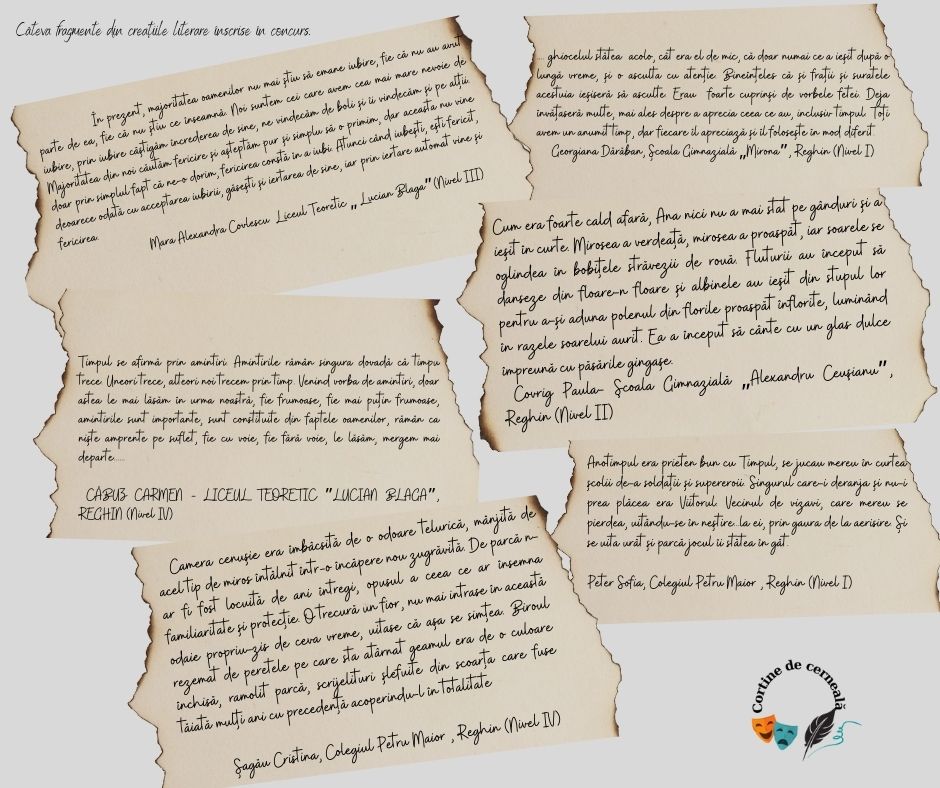 Câteva fragmente din creațiile literare înscrise în concurs.
În prezent, majoritatea oamenilor nu mai știu să emane iubire, fie că nu au avut
parte de ea, fie că nu știu ce înseamnă. Noi suntem cei care avem cea mai mare nevoie de
iubire, prin iubire câștigăm încrederea de sine, ne vindecăm de boli și îi vindecăm și pe alții.
Majoritatea din noi căutăm fericire și așteptăm pur și simplu să o primim, dar aceasta nu vine
doar prin simplul fapt că ne-o dorim, fericirea constă în a iubi. Atunci când iubești, ești fericit,
deoarece odată cu acceptarea iubirii, găsești și iertarea de sine, iar prin iertare automat vine și
fericirea.
Mara Alexandra Covlescu Liceul Teoretic „ Lucian Blaga” (Nivel III)
... ghiocelul stătea acolo, cât era el de mic, că doar numai ce a ieșit după o
lungă vreme, și o asculta cu atenție. Bineînțeles că și frații și suratele
acestuia ieșiseră să asculte. Erau foarte cuprinși de vorbele fetei. Deja
învățaseră multe, mai ales despre a aprecia ceea ce au, inclusiv timpul. Toți
avem un anumit timp, dar fiecare îl apreciază și îl folosește în mod diferit.
Georgiana Dărăban, Școala Gimnazială „Mirona” , Reghin (Nivel I)
Cum era foarte cald afară, Ana nici nu a mai stat pe gânduri și a
ieșit în curte. Mirosea a verdeață, mirosea a proaspăt, iar soarele se
oglindea în bobițele străvezii de rouă. Fluturii au început să
danseze din floare-n floare și albinele au ieșit din stupul lor
pentru a-și aduna polenul din florile proaspăt înflorite, luminând
în razele soarelui aurit. Ea a început să cânte cu un glas dulce
împreună cu păsările gingașe.
Covrig Paula- Școala Gimnazială „Alexandru Ceușianu” ,
Reghin (Nivel II)
Timpul se afirmă prin amintiri. Amintirile rămân singura dovadă că timpu
trece. Uneori trece, alteori noi trecem prin timp. Venind vorba de amintiri, doar
astea le mai lăsăm în urma noastră, fie frumoase, fie mai puțin frumoase,
amintirile sunt importante, sunt constituite din faptele oamenilor, rămân ca
niște amprente pe suflet, fie cu voie, fie fără voie, le lăsăm, mergem mai
departe.....
CĂBUZ CARMEN - LICEUL TEORETIC "LUCIAN BLAGA",
REGHIN (Nivel IV)
Anotimpul era prieten bun cu Timpul, se jucau mereu în curtea
școlii de-a soldații și supereroii. Singurul care-i deranja și nu-i
prea plăcea era Viitorul. Vecinul de vizavi, care mereu se
pierdea, uitându-se în neștire...la ei, prin gaura de la aerisire. Și
se uita urât și parcă jocul îi stătea în gât.
Peter Sofia, Colegiul Petru Maior , Reghin (Nivel I)
Camera cenușie era îmbâcsită de o odoare telurică, mânjită de
acel tip de miros întâlnit într-o încăpere nou zugrăvită. De parcă n-
ar fi fost locuită de ani întregi, opusul a ceea ce ar însemna
familiaritate și protecție. O trecură un fior, nu mai intrase în această
odaie propriu-zis de ceva vreme, uitase că așa se simțea. Biroul
rezemat de peretele pe care sta atârnat geamul era de o culoare
închisă, ramolit parcă, scrijelituri șlefuite din scoarța care fuse
tăiată mulți ani cu precedență acoperindu-l în totalitate
Șagău Cristina, Colegiul Petru Maior , Reghin (Nivel IV)
Cortine de cerneală